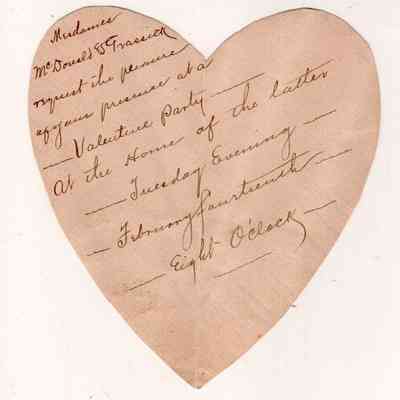 Mesdames
McDonald & Trassick
request the pleasure
of your presence at a
— Valentine Party —
at the Home of the latter
— Tuesday Evening —
— February fourteenth —
— Eight O'clock —